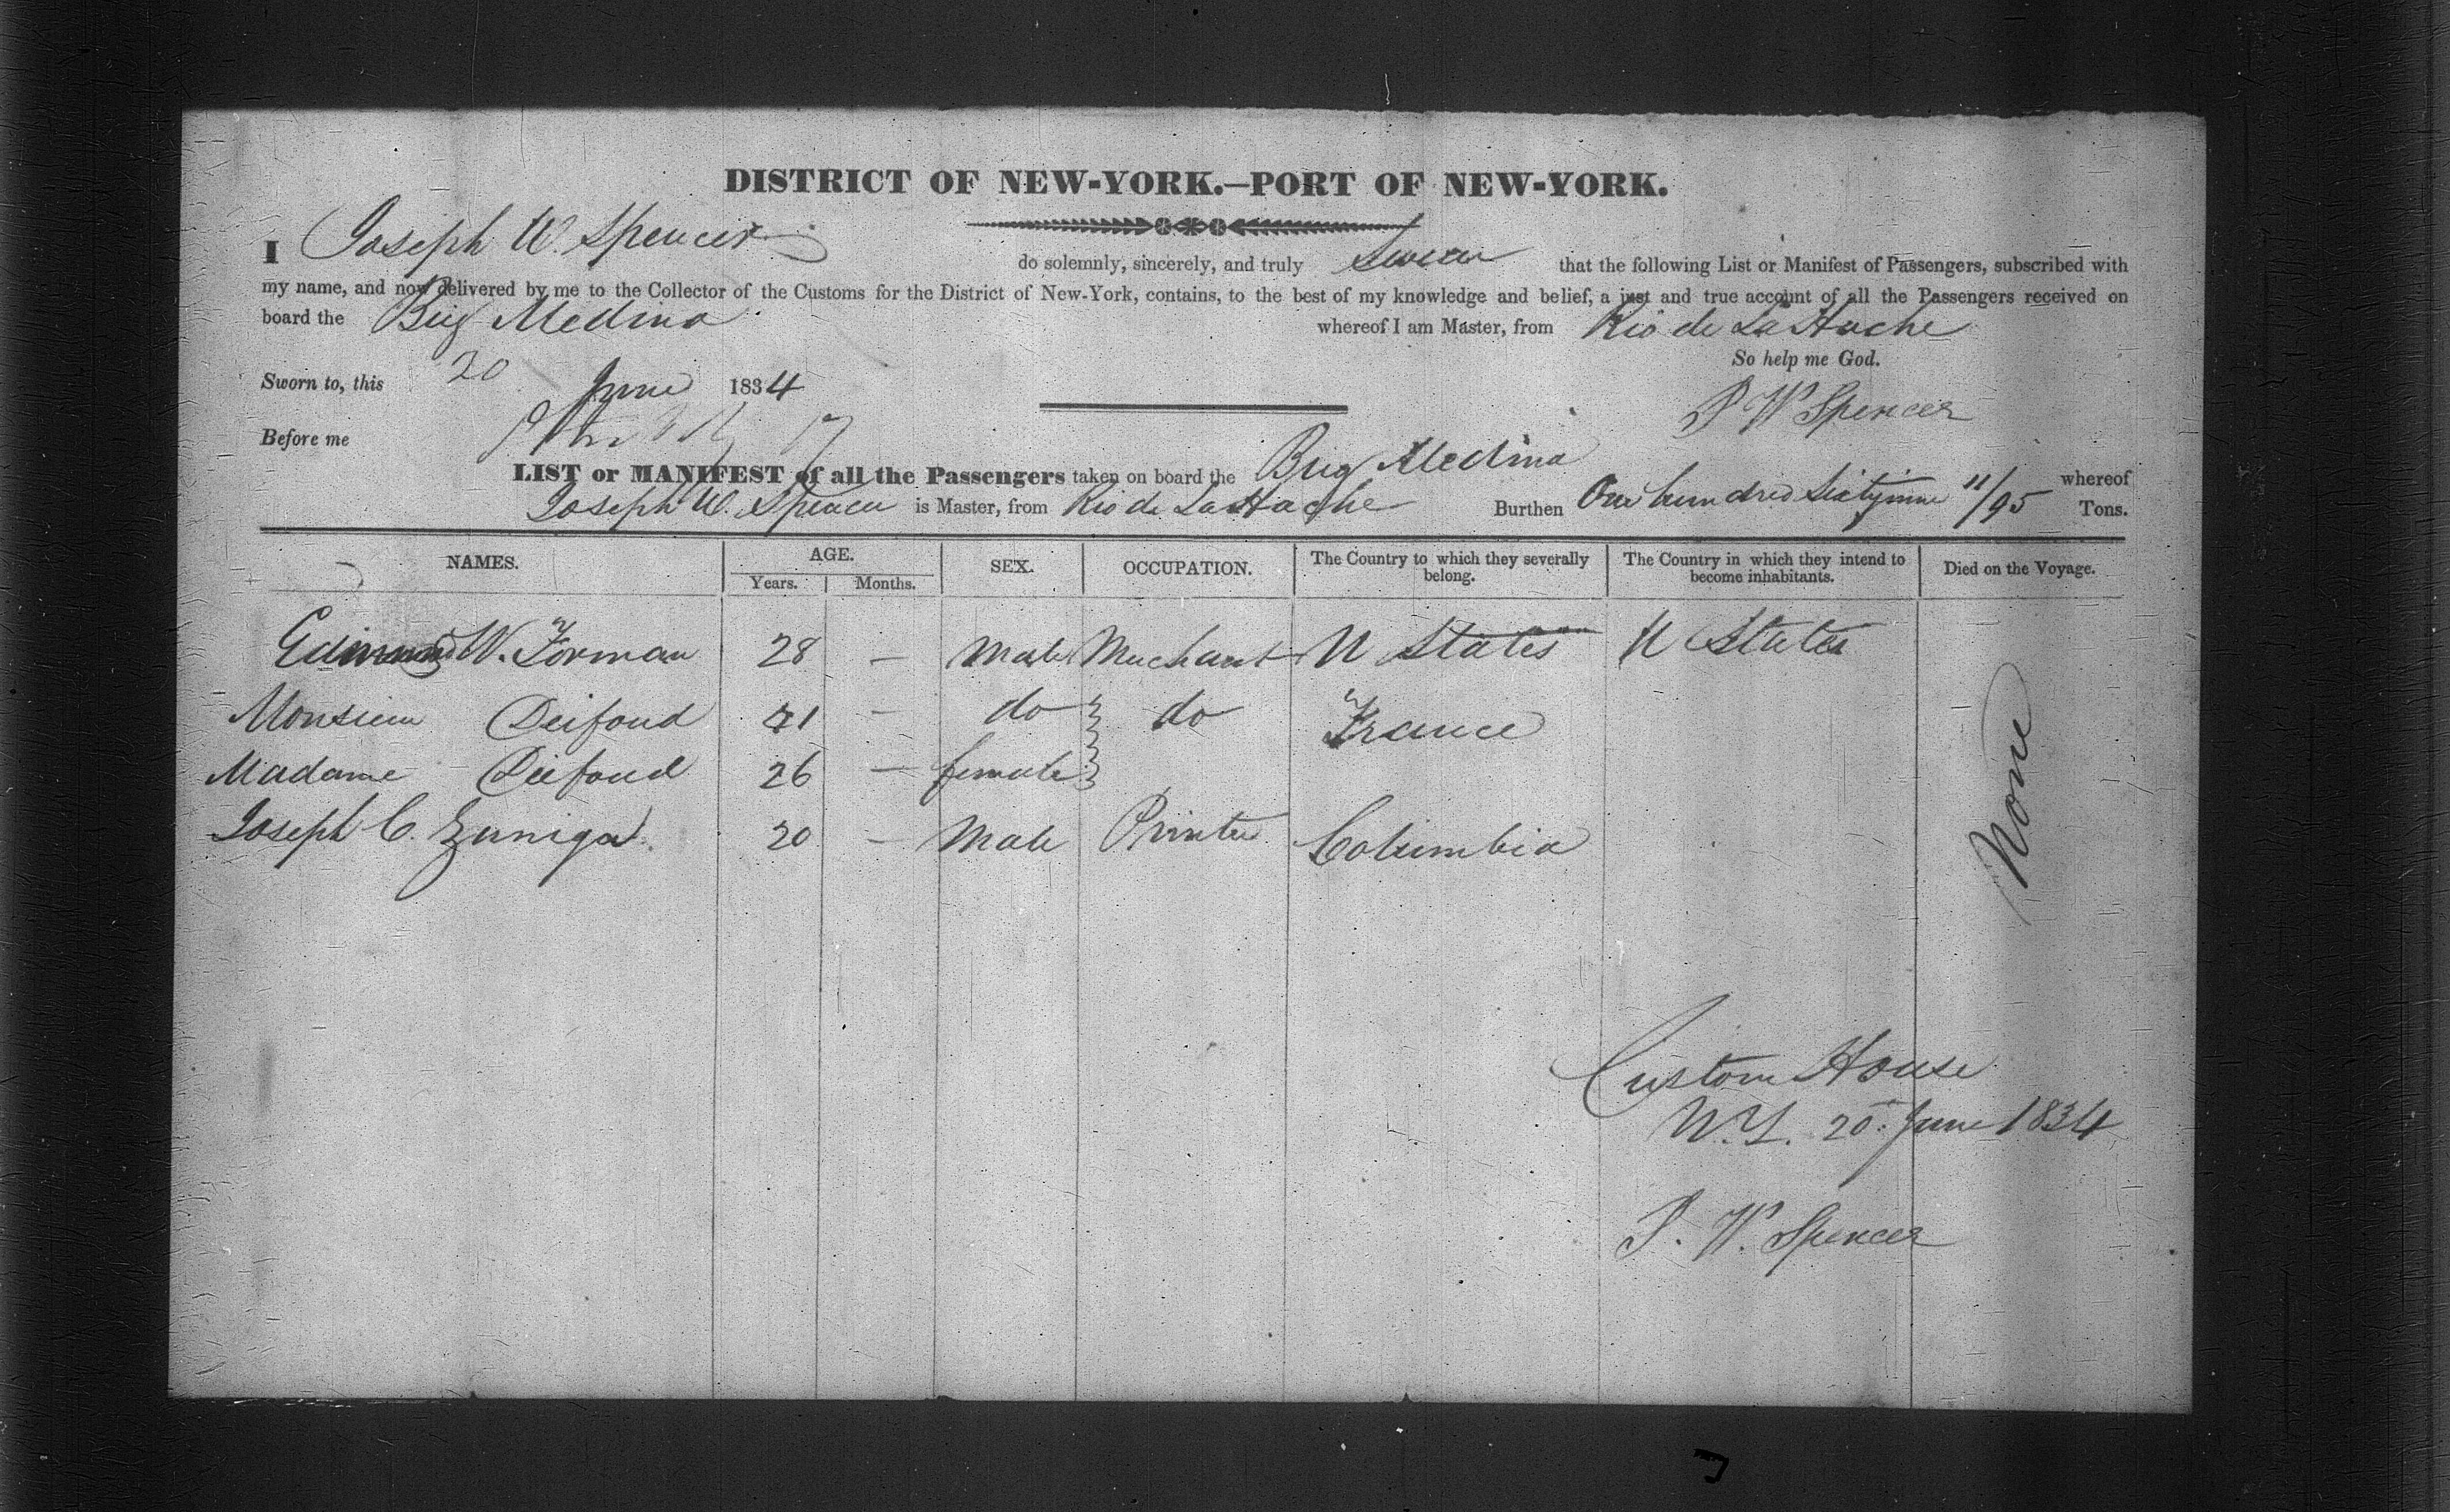 DISTRICT OF NEW-YORK.—PORT OF NEW-YORK.
I Joseph W. Spencer do solemnly, sincerely, and truly Swear that the following List or Manifest of Passengers, subscribed with
my name, and now delivered by me to the Collector of the Customs for the District of New-York, contains, to the best of my knowledge and belief, a just and true account of all the Passengers received on
board the Brig Medina whereof I am Master, from Rio de La Hache
So help me God.
Sworn to, this 20 June 1834
J W Spencer
Before me
LIST or MANIFEST of all the Passengers taken on board the Brig Medina whereof
Joseph W. Spencer is Master, from Rio de La Hache Burthen One hundred Sixtynine 11/95 Tons.
NAMES. AGE. SEX. OCCUPATION. The Country to which they severally belong. The Country in which they intend to become inhabitants. Died on the Voyage.
Years. Months.
Edmund W. Forman 28 — Male Merchant U States U States
Monsieur 41 — do do France
Madame 26 — female
Joseph C. Zuniga. 20 — Male Printer Columbia
None
Custom House
N.Y. 20 June 1834
J. W. Spencer